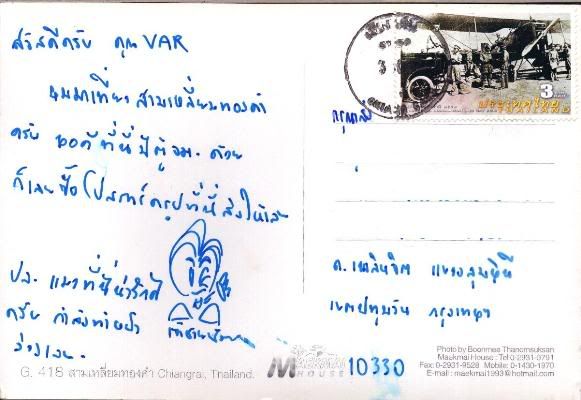 สวัสดีครับ คุณ VAR
ผมมาเที่ยว สามเหลี่ยมทองคำ
ครับ พอดีที่นี่มีตู้ จม. ด้วย
ก็เลยซื้อโปสการ์ดรูปที่นี่ส่งให้
ปล. แมวที่นี่น่ารักดี
ครับ กำลังทำ
3 บาท
ประเทศไทย
THAILAND
กรุณาส่ง
ถ.เพลินจิต แขวงลุมพินี
เขตปทุมวัน กรุงเทพฯ
10330
G. 418 สามเหลี่ยมทองคำ Chiangrai, Thailand.
MAEKMAI
HOUSE
Photo by Boonmee Thanomsuksan
Maekmai House : Tel 0-2931-0791
Fax: 0-2931-9528 Mobile: 0-1430-1970
E-mail : maekmai1993@hotmail.com